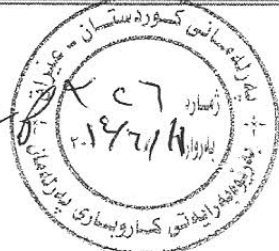 پەرلەمانی کوردستان - عێراق
ژمارە ٢٦
بەروار
بەڕێوەبەرایەتی کاروباری پەرلەمان